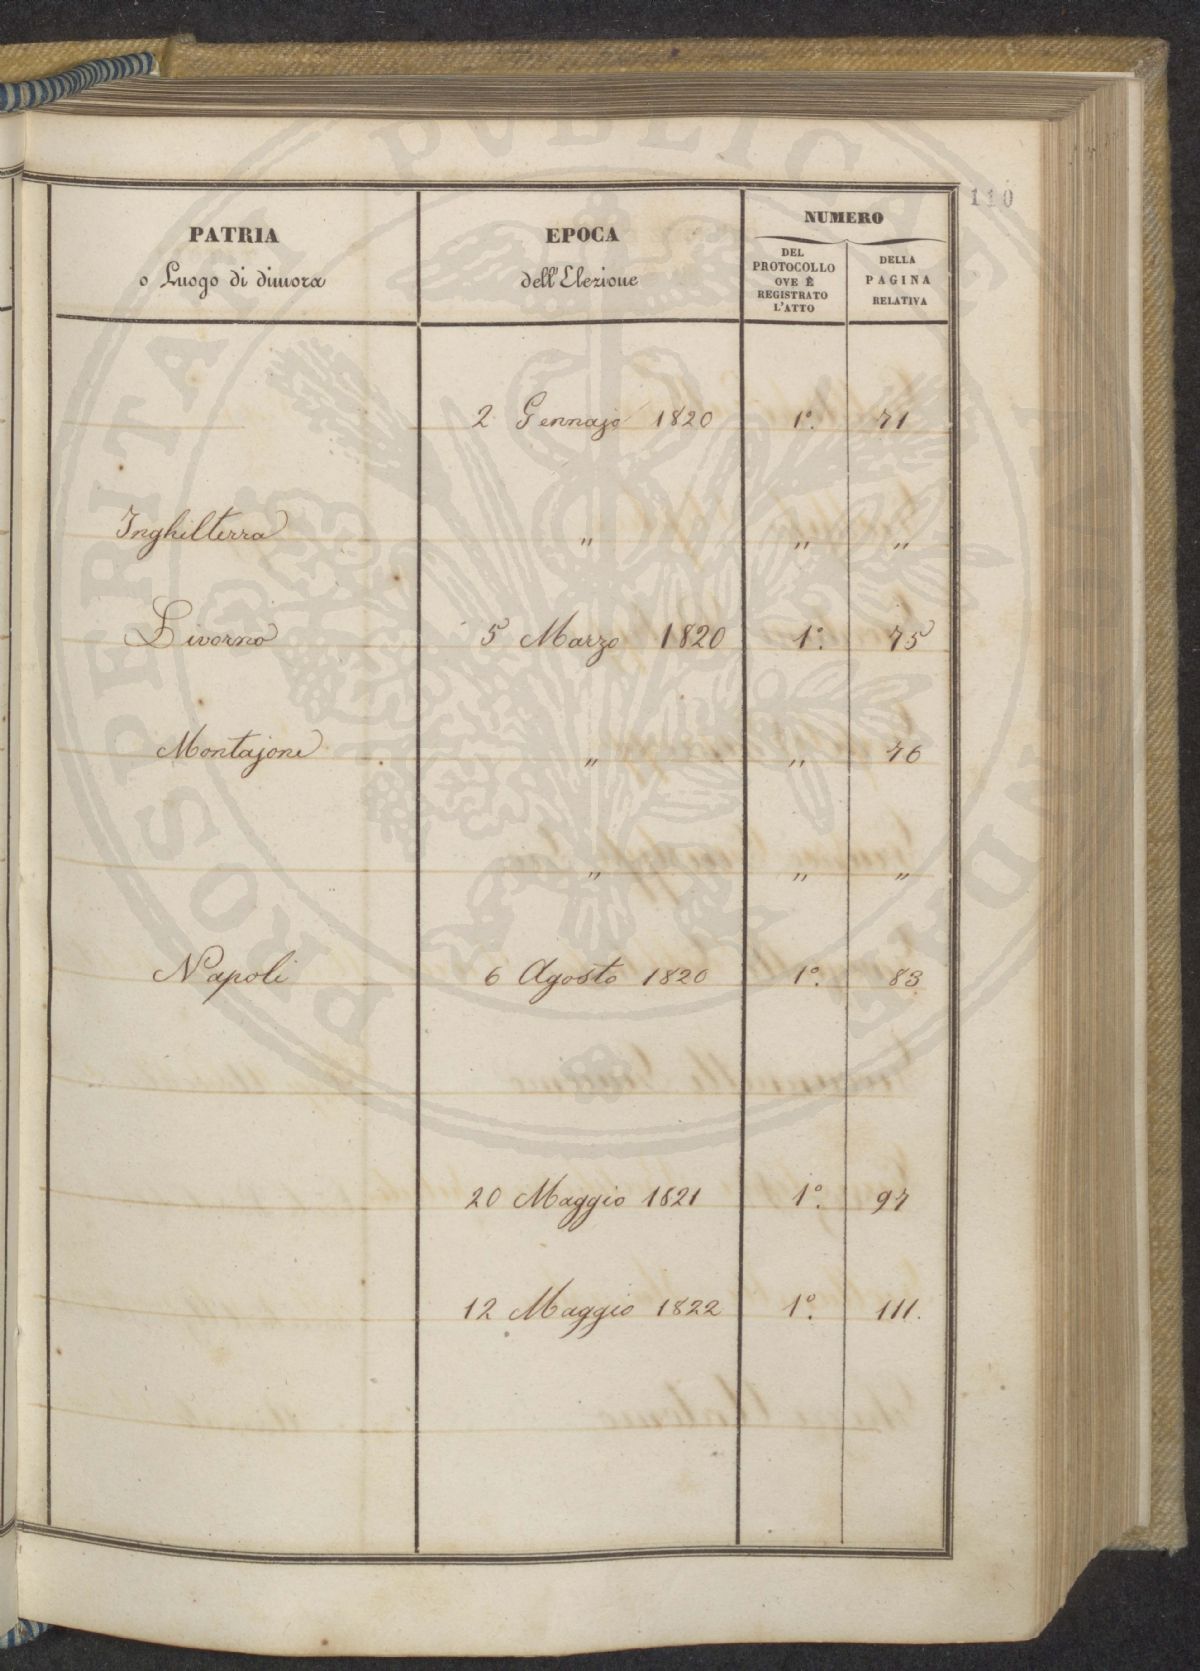 110
PATRIA
o Luogo di dimora
EPOCA
dell'Elezione
NUMERO
DEL
PROTOCOLLO
OVE È
REGISTRATO
L'ATTO
DELLA
PAGINA
RELATIVA
2 Gennajo 1820 1°. 71
Inghilterra " " "
Livorno 5 Marzo 1820 1°. 75
Montajone " " 76
" " "
Napoli 6 Agosto 1820 1°. 83
20 Maggio 1821 1°. 97
12 Maggio 1822 1°. 111.
PROSPERITATI PVBLICAE